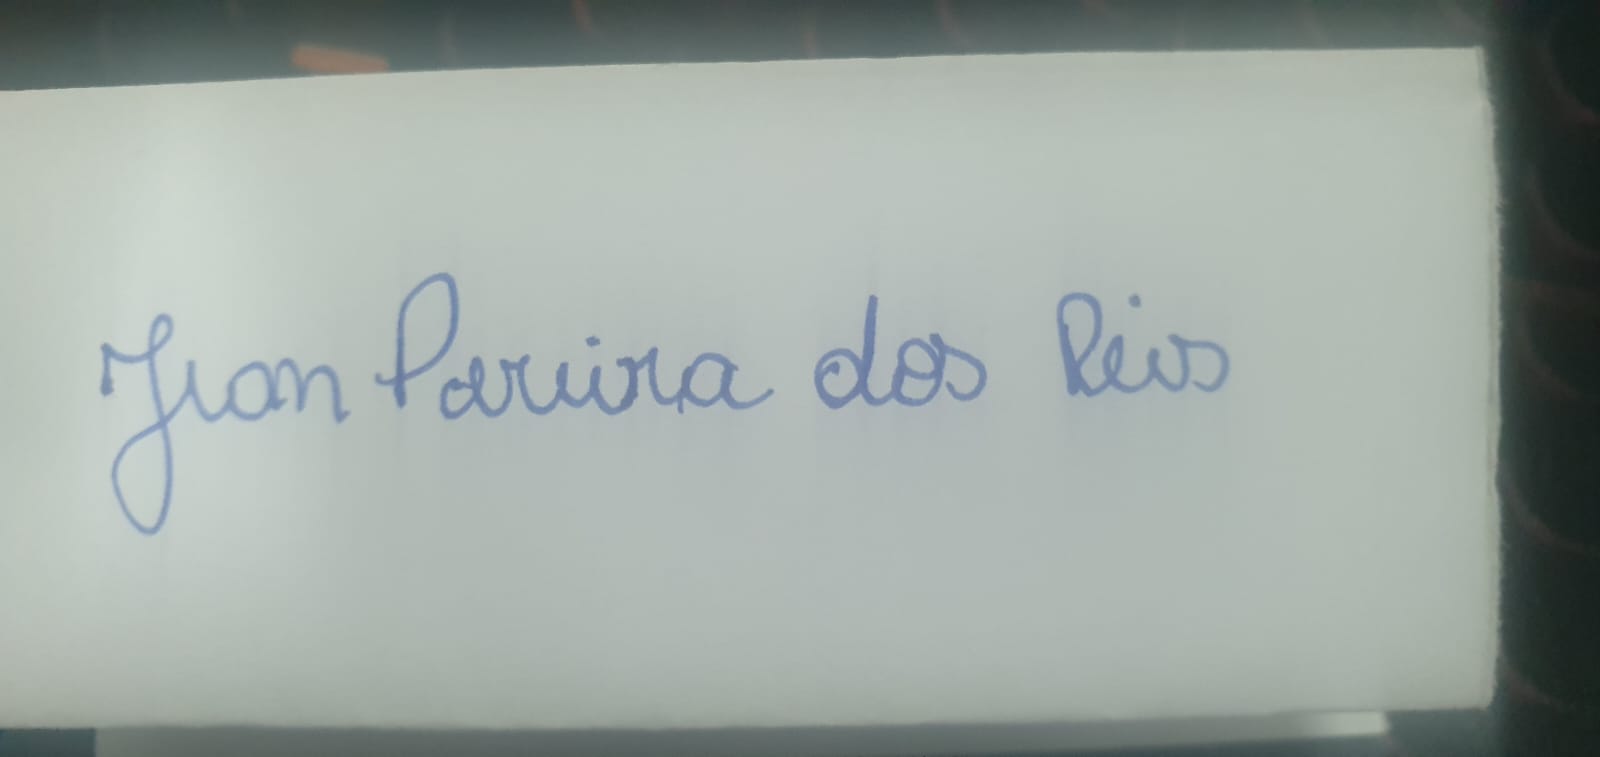 Jean Pereira dos Reis